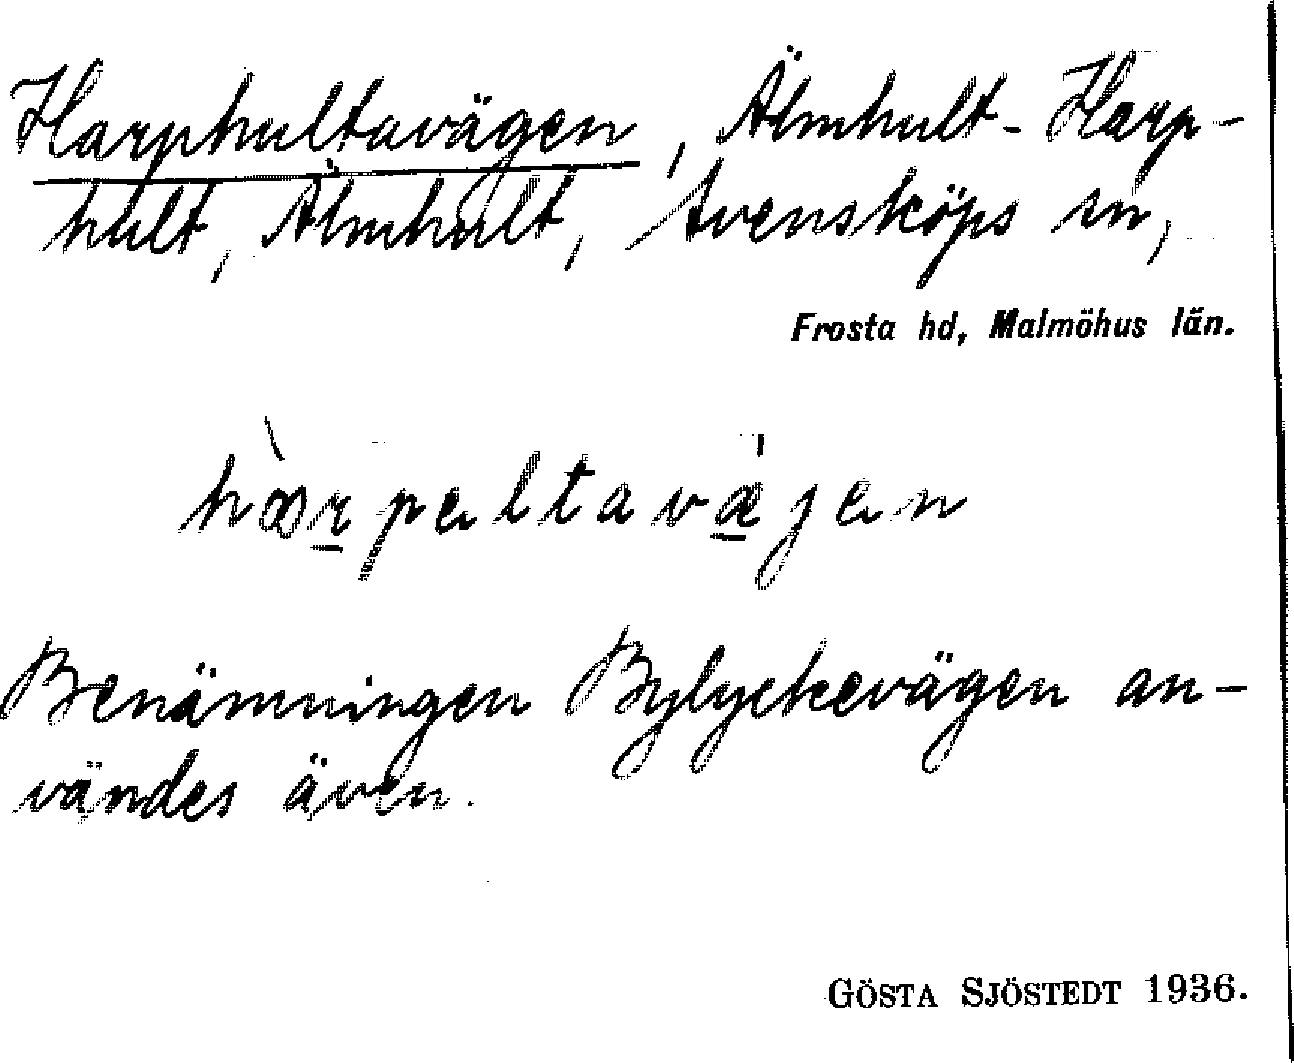 Harphultavägen, Älmhult-Harp-
hult, Älmhult, Svensköps sn,
Frosta hd, Malmöhus län.
hàrpeltavæ̀jen
Benämningen Bylyckevägen an-
vändes även.
GÖSTA SJÖSTEDT 1936.